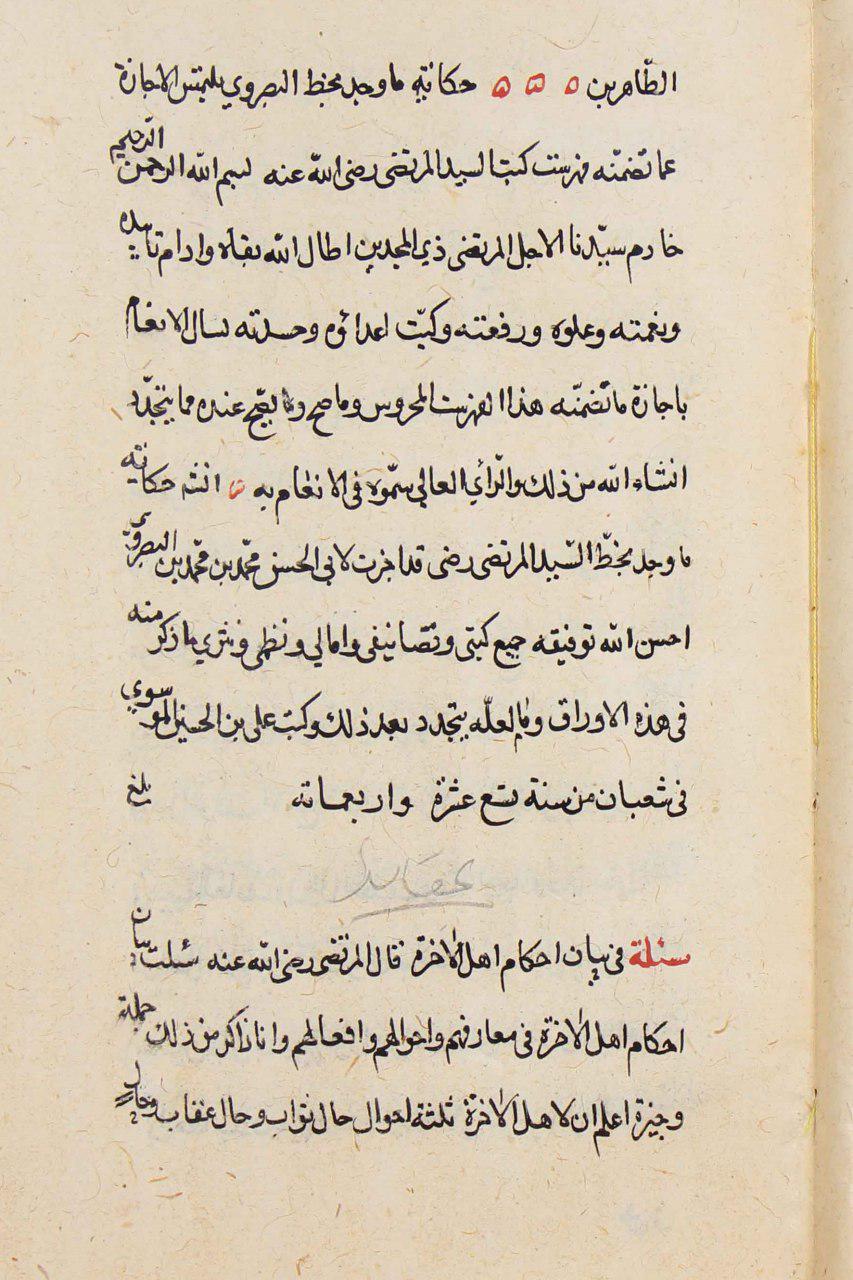 الطّاهرين ه ه ه حكاية ما وجد بخط البصروي يلتمس الاجازة
عما تضمّنه فهرست كتب السيد المرتضى رضى اللّه عنه بسم الله الرحمن الرّحيم
خادم سيّدنا الاجل المرتضى ذي المجدين اطال اللّه بقاه وادام تاييده
ونعمته وعلوه ورفعته وكبّت اعدائه وحسدته يسال الانعام
باجازة ما تضمّنه هذا الفهرست المحروس وما صح وما يصّح عنده مما يتجدّد
انشاء اللّه من ذلك والرّأي العالي سمّوه فى الانعام به حكاية
ما وجد بخطّ السّيد المرتضى رضى قد اجزت لابي الحسن محّمد بن محّمد بن البصروّي
احسن الله توفيقه جميع كتبى وتصانيفى وامالي ونظمى ونثري ما ذكر منه
فى هذه الاوراق وما لعلّه يتجدد بعد ذلك وكتب على بن الحسين الموسوي
فى شعبان من سنة سبع عشرة واربعمائه بلغ
مسئلة فى بيان احكام اهل الآخرة قال المرتضى رضى اللّه عنه سئلت بيان
احكام اهل الآخرة فى معارفهم واحوالهم وافعالهم وانا ذاكر من ذلك جملة
وجيزة اعلم ان لاهل الآخرة ثلثة احوال حال ثواب وحال عقاب وحال